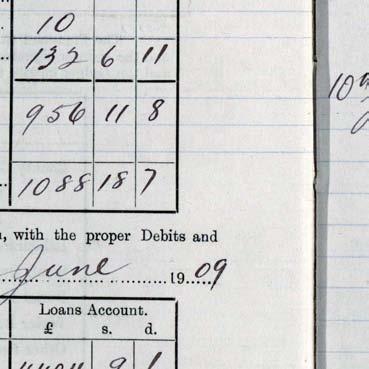 10
132 6 11
956 11 8
1088 18 7
, with the proper Debits and
June 1909
Loans Account.
£ s. d.
9 1